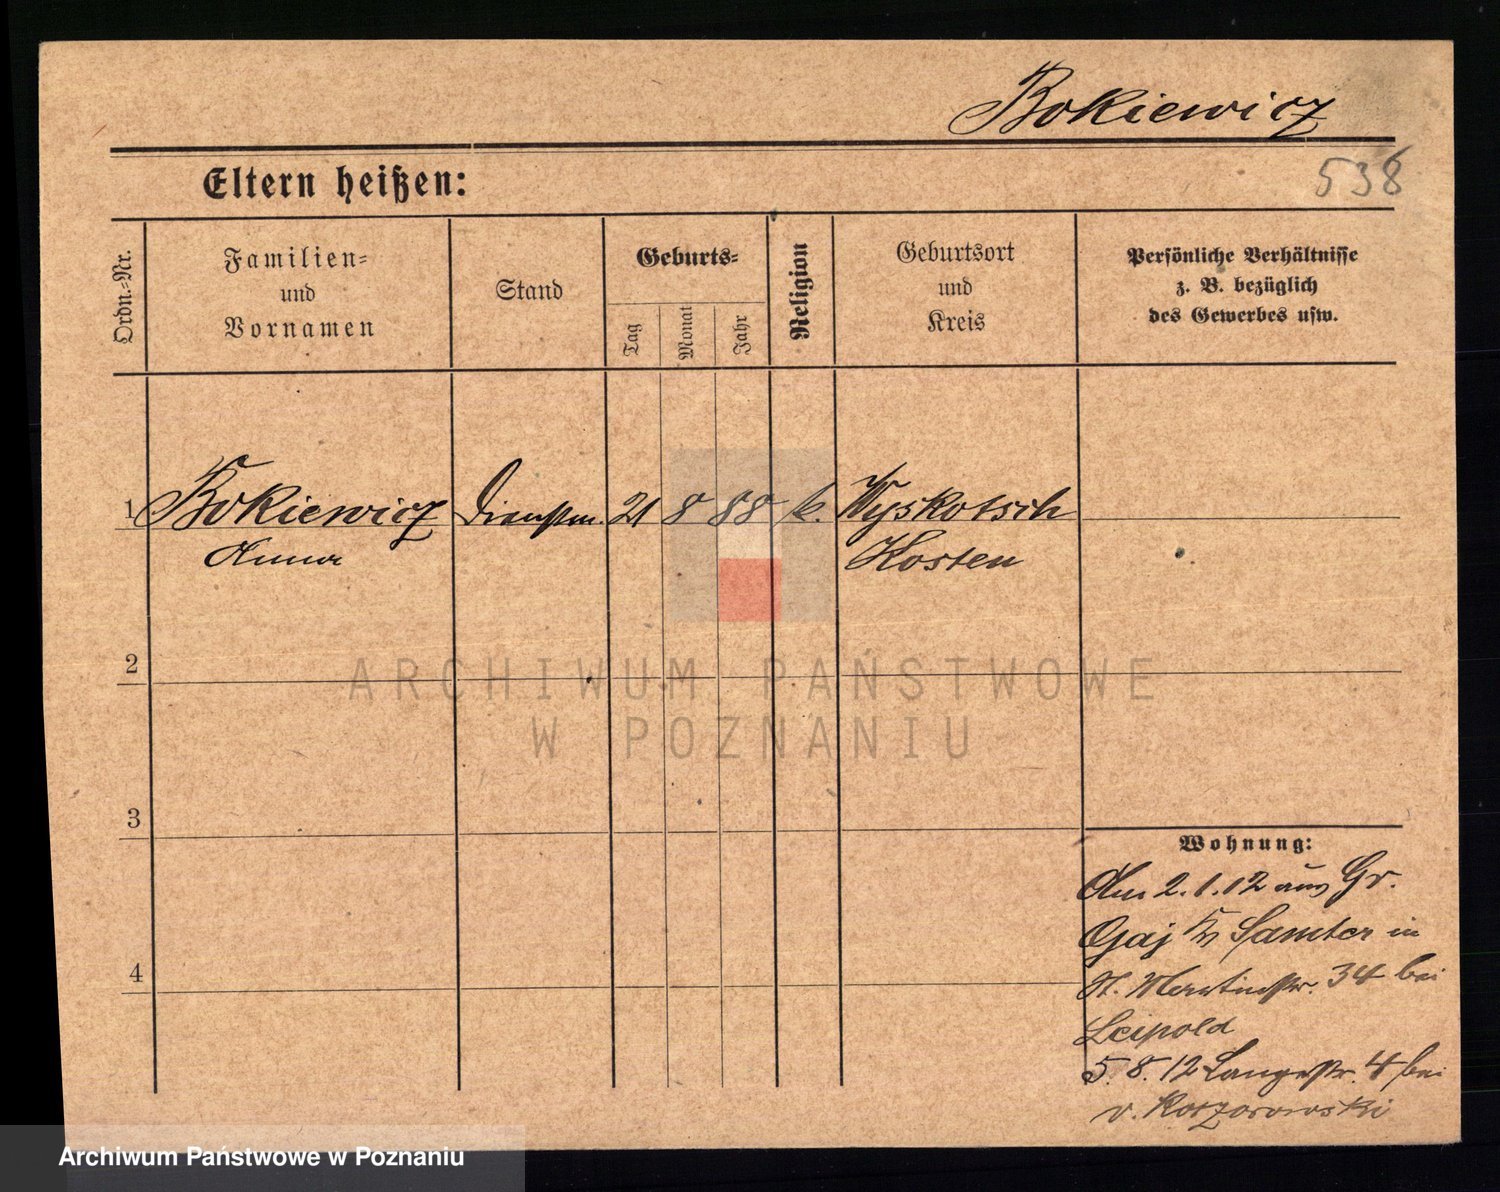 Bokiewicz
538
Eltern heißen:
Ordn.-Nr.
Familien-
und
Vornamen
Stand
Geburts-
Tag
Monat
Jahr
Religion
Geburtsort
und
Kreis
Persönliche Verhältnisse
z. B. bezüglich
des Gewerbes usw.
1 Bokiewicz Dienstm. 21 8 88 k. Wyskotsch
Anna Kosten
2
3
4
Wohnung:
Am 2.1.12 aus Gr.
Gaj Kr Samter in
St. Martinstr. 34 bei
Leipold
5.8.12 Langestr. 4 bei
v. Koszorowski
ARCHIWUM PAŃSTWOWE
W POZNANIU
Archiwum Państwowe w Poznaniu